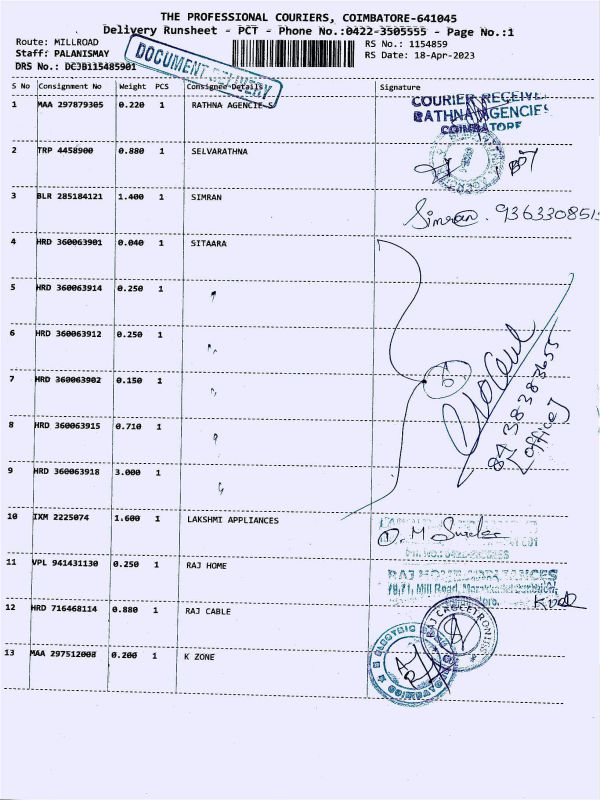 THE PROFESSIONAL COURIERS, COIMBATORE-641045
Delivery Runsheet - PCT - Phone No.:0422-3505555 - Page No.:1
Route: MILLROAD
RS No.: 1154859
Staff: PALANISMAY
RS Date: 18-Apr-2023
DRS No.: DCJB115485901
DOCUMENT DELIVERY
S No Consignment No Weight PCS Consignee Details Signature
1 MAA 297879305 0.220 1 RATHNA AGENCIES
COURIER RECEIVE
RATHNA AGENCIES
COIMBATORE
2 TRP 4458900 0.880 1 SELVARATHNA
3 BLR 285184121 1.400 1 SIMRAN Simran. 936330851
4 HRD 360063901 0.040 1 SITAARA
5 HRD 360063914 0.250 1 "
6 HRD 360063912 0.250 1 "
7 HRD 360063902 0.150 1 " 6
8 HRD 360063915 0.710 1 "
8438383655
[office]
9 HRD 360063918 3.000 1 "
10 IXM 2225074 1.600 1 LAKSHMI APPLIANCES
11 VPL 941431130 0.250 1 RAJ HOME
RAJ HOME APPLIANCES
70,71, Mill Road,
12 HRD 716468114 0.880 1 RAJ CABLE
13 MAA 297512008 0.200 1 K ZONE